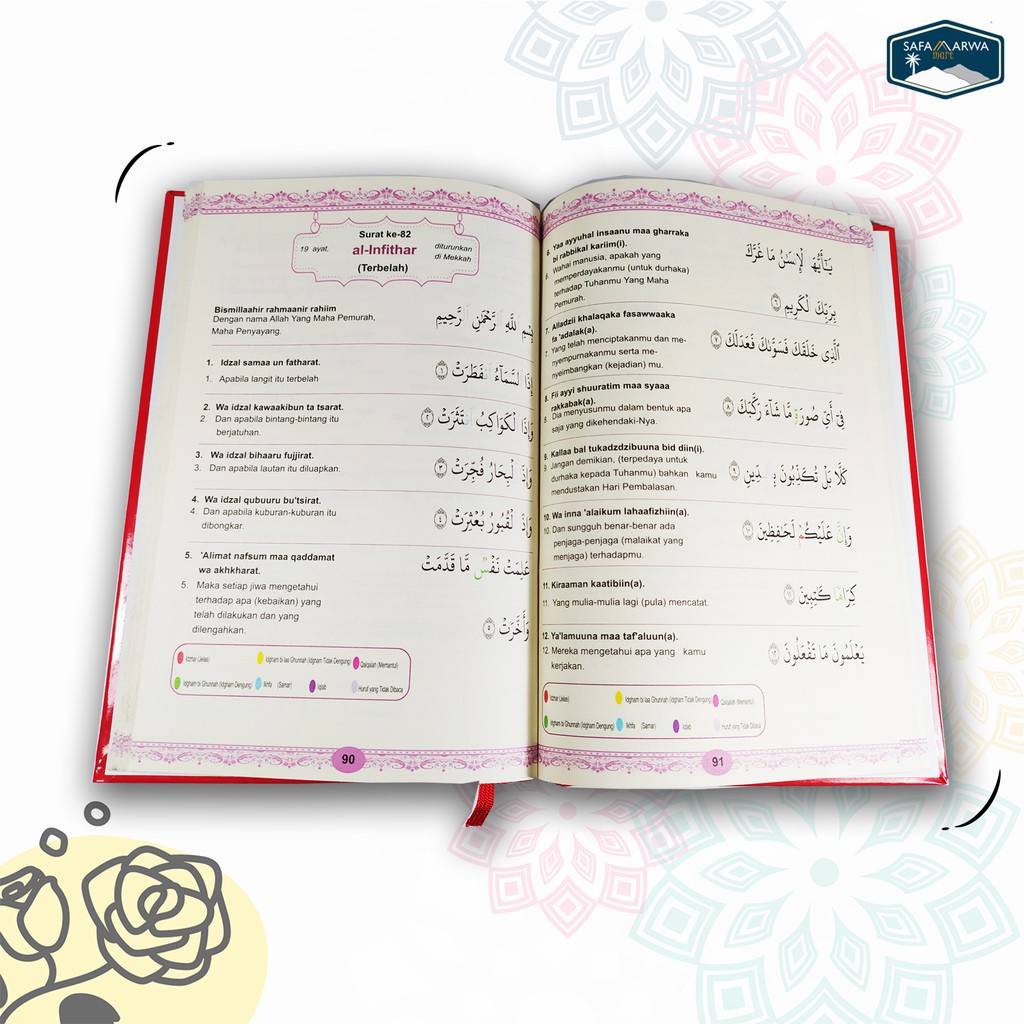 SAFA MARWA
mart
Surat ke-82
19 ayat,
al-Infithar
diturunkan
di Mekkah
(Terbelah)
Bismillaahir rahmaanir rahiim
Dengan nama Allah Yang Maha Pemurah,
Maha Penyayang.
1. Idzal samaa un fatharat.
1. Apabila langit itu terbelah
2. Wa idzal kawaakibun ta tsarat.
2. Dan apabila bintang-bintang itu
berjatuhan.
وَإِذَا
3. Wa idzal bihaaru fujjirat.
3. Dan apabila lautan itu diluapkan.
4. Wa idzal qubuuru bu'tsirat.
4. Dan apabila kuburan-kuburan itu
dibongkar.
5. 'Alimat nafsum maa qaddamat
wa akhkharat.
عَلِمَتْ نَفْسٌ مَّا قَدَّمَتْ
5. Maka setiap jiwa mengetahui
terhadap apa (kebaikan) yang
telah dilakukan dan yang
dilengahkan.
وَأَخَّرَتْ ٥
Idzhar (Jelas)
Idgham bi laa Ghunnah (Idgham Tidak Dengung)
Qalqalah (Memantul)
Idgham bi Ghunnah (Idgham Dengung)
Ikhfa (Samar)
Iqlab
Huruf yang Tidak Dibaca
90
6. Yaa ayyuhal insaanu maa gharraka
bi rabbikal kariim(i).
6. Wahai manusia, apakah yang
memperdayakanmu (untuk durhaka)
terhadap Tuhanmu Yang Maha
Pemurah.
7. Alladzii khalaqaka fasawwaaka
fa 'adalak(a).
7. Yang telah menciptakanmu dan me-
nyempurnakanmu serta me-
nyeimbangkan (kejadian) mu.
8. Fii ayyi shuuratim maa syaaa
rakkabak(a).
فِىٓ أَىِّ صُورَةٍ مَّا شَآءَ رَكَّبَكَ ٨
8. Dia menyusunmu dalam bentuk apa
saja yang dikehendaki-Nya.
9. Kallaa bal tukadzdzibuuna bid diin(i).
9. Jangan demikian, (terpedaya untuk
durhaka kepada Tuhanmu) bahkan kamu
mendustakan Hari Pembalasan.
10. Wa inna 'alaikum lahaafizhiin(a).
وَإِنَّ عَلَيْكُمْ لَحَٰفِظِينَ ١٠
10. Dan sungguh benar-benar ada
penjaga-penjaga (malaikat yang
menjaga) terhadapmu.
11. Kiraaman kaatibiin(a).
كِرَامًا كَٰتِبِينَ ١١
11. Yang mulia-mulia lagi (pula) mencatat.
12. Ya'lamuuna maa taf'aluun(a).
يَعْلَمُونَ مَا تَفْعَلُونَ ١٢
12. Mereka mengetahui apa yang kamu
kerjakan.
Idzhar (Jelas)
Idgham bi laa Ghunnah (Idgham Tidak Dengung)
Qalqalah (Memantul)
Idgham bi Ghunnah (Idgham Dengung)
Ikhfa (Samar)
Iqlab
Huruf yang Tidak Dibaca
91